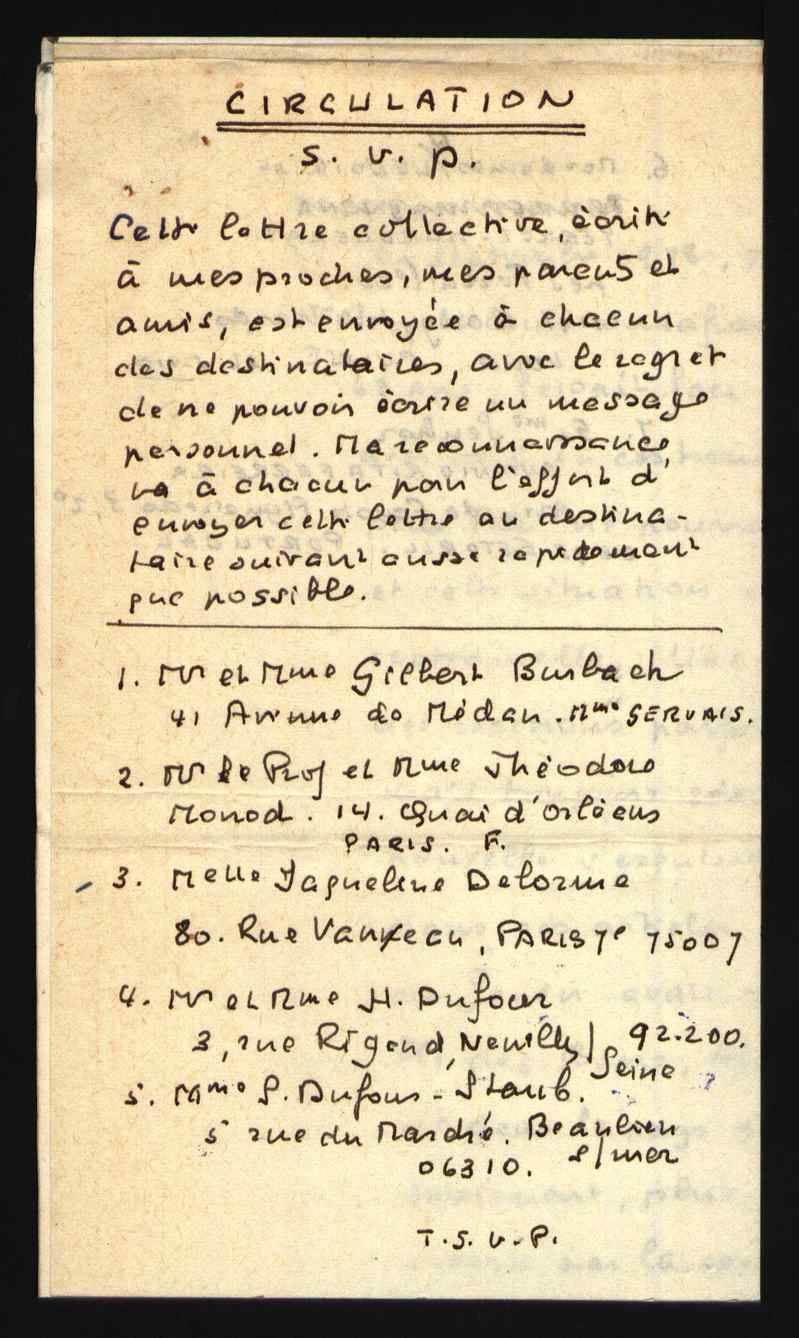 CIRCULATION
s. v. p.
Cette lettre collective, écrite
à mes proches, mes parents et
amis, est envoyée à chacun
des destinataires, avec le regret
de ne pouvoir écrire un message
personnel. Ma reconnaissance
va à chacun pour l'effort d'
envoyer cette lettre au destina-
taire suivant aussi rapidement
que possible.
1. Mr et Mme Gilbert Burbach
41 Avenue de Médan. Mme GERVAIS.
2. Mr le Prof et Mme Théodore
Monod. 14. Quai d'Orléans
PARIS. F.
3. Melle Jaqueline Delorme
80. Rue Vanneau, PARIS 7e 75007
4. Mr et Mme H. Dufour
3, rue Rigaud, Neuilly/ 92.200.
Seine
5. Mme S. Dufour-Staub.
5 rue du Marché. Beaulieu
06310. s/mer
T.S.V.P.